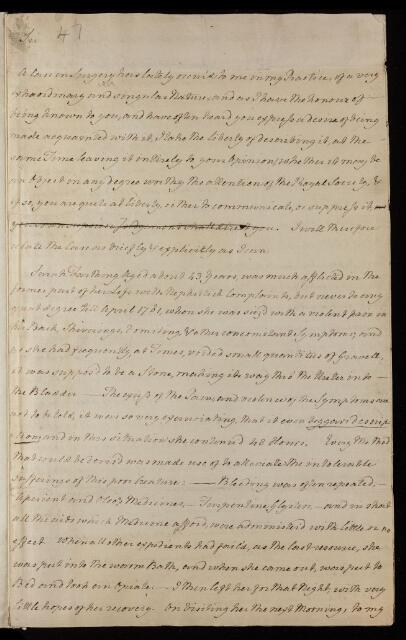 Sir 47
A Case in Surgery has lately occur'd to me in my Practice, of a very
extraordinary and singular Nature, and as I have the honour of
being known to you, and have often heard you express a desire of being
made acquainted with it, I take the liberty of describing it, at the
same Time leaving it entirely to your Opinion, whether it may be
an Object in any degree worthy the attention of the Royal Society, &
if so, you are quite at liberty, either to communicate, or suppress it,
I will therefore
relate the Case as briefly & explicitly as I can.
Sarah Farthing Aged about 43 Years, was much afflicted in the
former part of her Life with Nephritick Complaints, but never to any
great degree till April 1761, when she was seized with a violent pain in
his Back, Shiverings, Vomiting, & other concomitant Symptoms, and
as she had frequently at Times, voided small quantities of Gravell,
it was suppos'd to be a Stone, making its way thro' the Ureter into
the Bladder — The excess of the Pain, and violence of the Symptoms is
not to be told, it was so very excruciating, that it even beggar'd descrip
tion, and in this situation she continued 48 Hours. Every Method
that could be devis'd was made use of to alleviate the intolerable
sufferings of this poor Creature: — Bleeding was often repeated: —
Aperient and Oleos Medicines, — Turpentine Glysters, — and in short
all the aids which Medicine afford, were administer'd with little or no
effect. When all other expedients had fail'd, as the last resource, she
was put into the warm Bath, and when she came out, was put to
Bed and took an Opiate — I then left her for that Night, with very
little hopes of her recovery. On visiting her the next Morning, to my